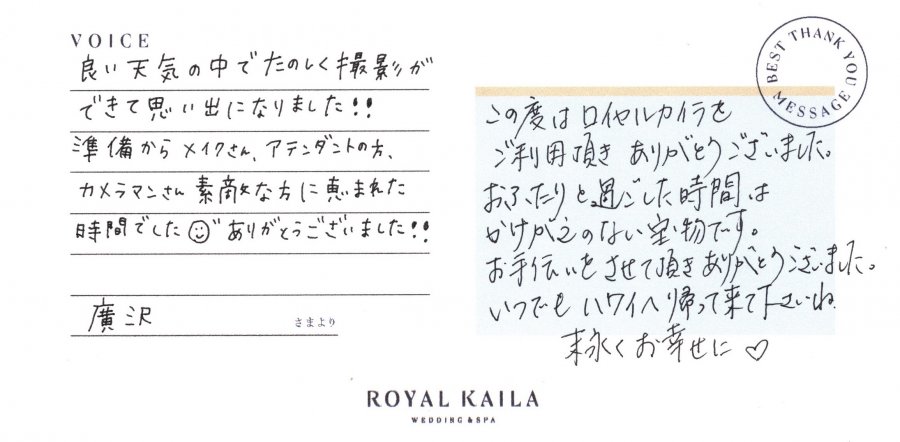 VOICE
良い天気の中でたのしく撮影が
できて思い出になりました!!
準備からメイクさん、アテンダントの方、
カメラマンさん素敵な方に恵まれた
時間でした☺ありがとうございました!!
廣沢 さまより
BEST THANK YOU MESSAGE
この度はロイヤルカイラを
ご利用頂きありがとうございました。
おふたりと過ごした時間は
かけがえのない宝物です。
お手伝いをさせて頂きありがとうございました。
いつでもハワイへ帰って来て下さいね
末永くお幸せに♡
ROYAL KAILA
WEDDING & SPA